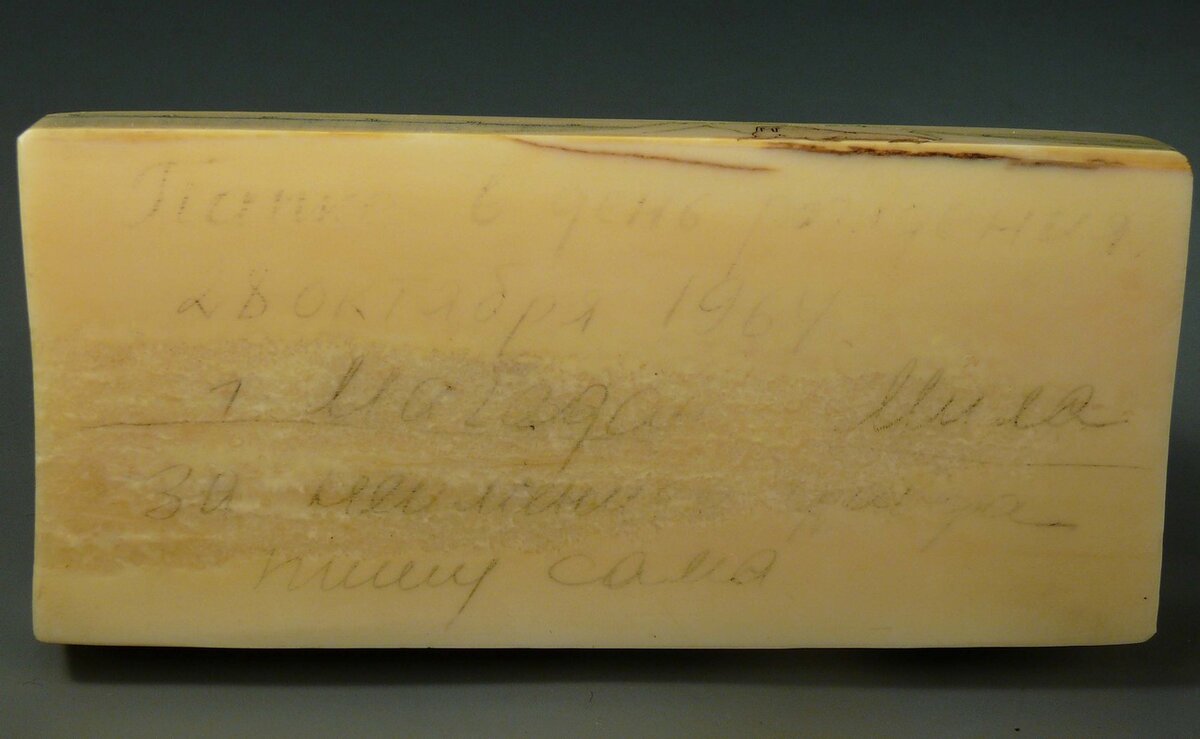 Папке в день рождения.
28 октября 1964
г Магадан Мила
За неимением гравера
пишу сама